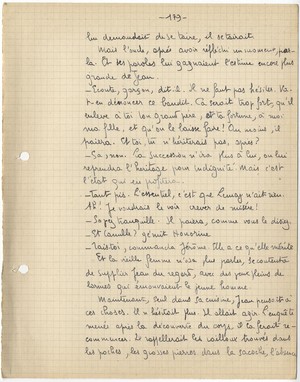 -119-
lui demandait de se taire, il se taisait.
Mais l'oncle, après avoir réfléchi un moment, par-
la. Et ses paroles lui gagnaient l'estime encore plus
grande de Jean.
- Ecoute, garçon, dit-il. Il ne faut pas hésiter. Va-
t-en dénoncer ce bandit. Ça serait trop fort, qu'il
enlève à toi ton grand père, et ta fortune, à moi
ma fille, et qu'on le laisse faire! Au moins, il
paiera. Et toi, tu n'hériterais pas, après?
- Si, non. La succession n'ira plus à lui, on lui
reprendra l'héritage pour indignité. Mais c'est
l'état qui en profitera.
- Tant pis. L'essentiel, c'est que Limay n'ait rien.
Ah! Je voudrais le voir crever de misère!
- Soyez tranquille. Il paiera, comme vous le dites.
- Et Camille? gémit Honorine.
- Tais-toi, commanda Jérôme. Elle a ce qu'elle mérite.
Et la vieille femme n'osa plus parler, se contenta
de supplier Jean du regard, avec des yeux pleins de
larmes qui émouvaient le jeune homme.
Maintenant, seul dans sa cuisine, Jean pensait à
ces choses. Il n'hésitait plus. Il allait agir. L'enquête
menée après la découverte du corps, il la ferait re-
commencer. Il rappellerait les cailloux trouvés dans
les poches, les grosses pierres dans la sacoche, l'absence